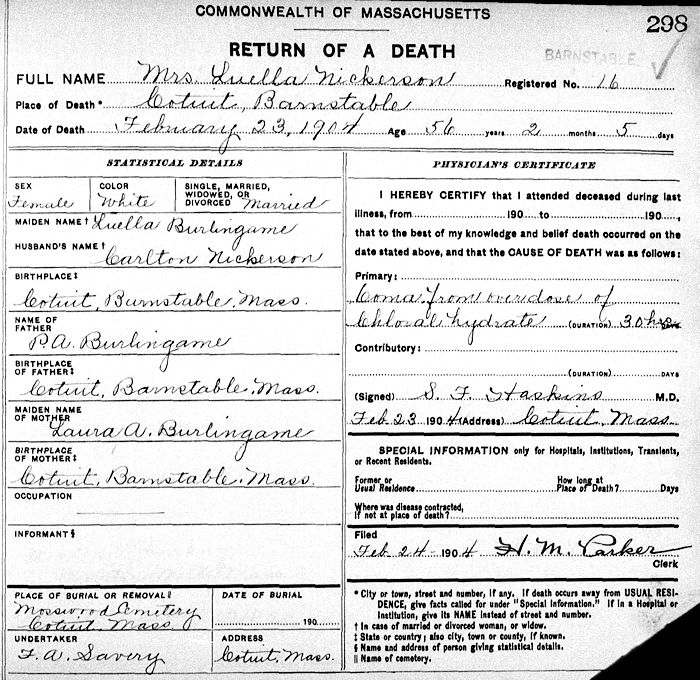 COMMONWEALTH OF MASSACHUSETTS
298
RETURN OF A DEATH
BARNSTABLE
FULL NAME Mrs. Luella Nickerson Registered No. 16
Place of Death* Cotuit, Barnstable
Date of Death February 23, 1904 Age 56 years 2 months 5 days
STATISTICAL DETAILS
SEX
Female
COLOR
White
SINGLE, MARRIED,
WIDOWED, OR
DIVORCED Married
MAIDEN NAME† Luella Burlingame
HUSBAND'S NAME†
Carlton Nickerson
BIRTHPLACE‡
Cotuit, Burnstable, Mass.
NAME OF
FATHER
P.A. Burlingame
BIRTHPLACE
OF FATHER‡
Cotuit, Barnstable, Mass.
MAIDEN NAME
OF MOTHER
Laura A. Burlingame
BIRTHPLACE
OF MOTHER‡
Cotuit, Barnstable, Mass.
OCCUPATION
INFORMANT§
PLACE OF BURIAL OR REMOVAL‖
Mosswood Cemetery
Cotuit Mass.
DATE OF BURIAL
190
UNDERTAKER
F. A. Savery
ADDRESS
Cotuit, Mass.
PHYSICIAN'S CERTIFICATE
I HEREBY CERTIFY that I attended deceased during last
illness, from 190 to 190 ,
that to the best of my knowledge and belief death occurred on the
date stated above, and that the CAUSE OF DEATH was as follows:
Primary:
Coma from overdose of
Chloral hydrate (DURATION) 30 hrs DAYS
Contributory:
(DURATION) DAYS
(Signed) S. F. Haskins M.D.
Feb 23 1904 (Address) Cotuit, Mass.
SPECIAL INFORMATION only for Hospitals, Institutions, Transients,
or Recent Residents.
Former or
Usual Residence
How long at
Place of Death? Days
Where was disease contracted,
If not at place of death?
Filed
Feb 24 1904 H. M. Parker
Clerk
* City or town, street and number, if any. If death occurs away from USUAL RESI-
DENCE, give facts called for under "Special Information." If in a Hospital or
Institution, give its NAME instead of street and number.
† In case of married or divorced woman, or widow.
‡ State or country; also city, town or county, if known.
§ Name and address of person giving statistical details.
‖ Name of cemetery.